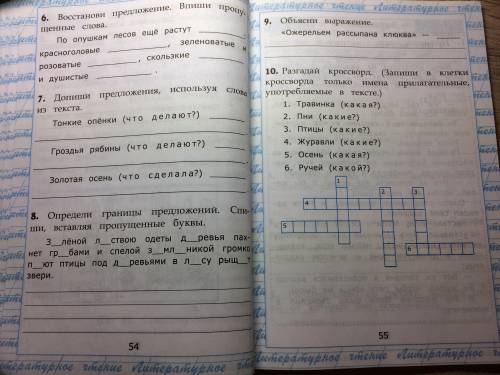 Литературное чтение
6. Восстанови предложение. Впиши пропу-
щенные слова.
По опушкам лесов ещё растут ________
красноголовые ________, зеленоватые и
розоватые ________, скользкие ________
и душистые ________.
7. Допиши предложения, используя слова
из текста.
Тонкие опёнки (что делают?) ________
Гроздья рябины (что делают?) ________
Золотая осень (что сделала?) ________
8. Определи границы предложений. Спи-
ши, вставляя пропущенные буквы.
З__лёной л__ствою одеты д__ревья пах-
нет гр__бами и спелой з__мл__никой громко
п__ют птицы под д__ревьями в л__су рыщ__т
звери.
54
Литературное чтение
9. Объясни выражение.
«Ожерельем рассыпана клюква» — ________
10. Разгадай кроссворд. (Запиши в клетки
кроссворда только имена прилагательные,
употребляемые в тексте.)
1. Травинка (какая?)
2. Пни (какие?)
3. Птицы (какие?)
4. Журавли (какие?)
5. Осень (какая?)
6. Ручей (какой?)
1
2
3
4
5
6
55
Литературное чтение Литературное чтение